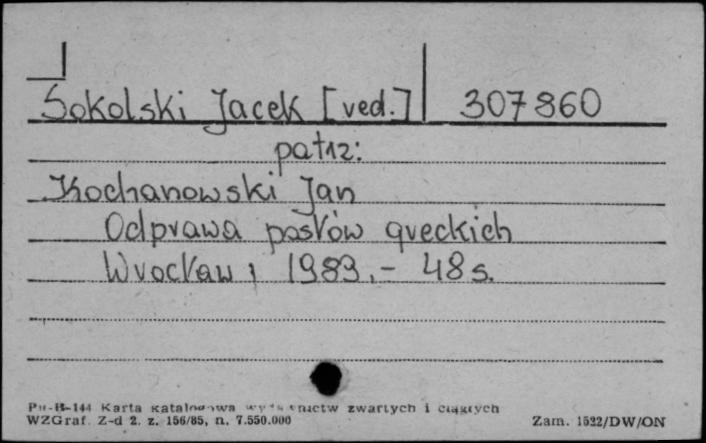 Sokolski Jacek [red.] 307860
patrz:
Kochanowski Jan
Odprawa posłów greckich
Wrocław, 1983.- 48 s.
Pu-B-144 Karta katalogowa wydawnictw zwartych i ciągłych
WZGraf. Z-d 2. z. 156/85, n. 7.550.000 Zam. 1522/DW/ON